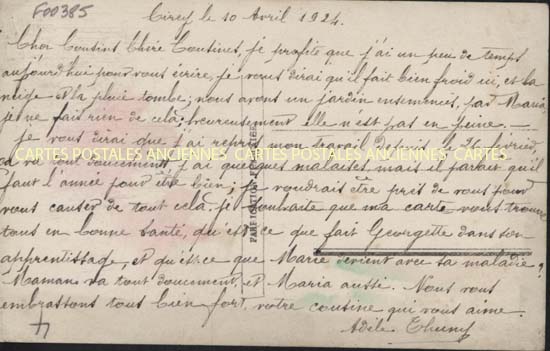 F00385
Cirey le 10 Avril 1924.
Cher Cousins Chère Cousines, je profite que j'ai un peu de temps
aujourd'hui pour vous écrire, je vous dirai qu'il fait bien froid ici, et la
neige et la pluie tombe; nous avons un jardin ensemencé, par Maria
je ne fais rien de celà, heureusement elle n'est pas en peine.
je vous dirai que j'ai repris mon travail depuis le
CARTES POSTALES ANCIENNES CARTES POSTALES ANCIENNES CARTES
ça va tout doucement j'ai quelques malaises, mais il parait qu'il
faut l'année pour être bien; je voudrais être près de vous pour
vous causer de tout celà. je souhaite que ma carte vous trouve
tous en bonne santé, qu'est ce que fait Georgette dans son
apprentissage, et qu'est ce que Marie devient avec sa maladie?
Maman va tout doucement, et Maria aussi. Nous vous
embrassons tous bien fort, votre cousine qui vous aime.
Adèle